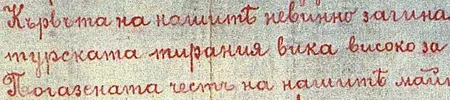 Кървьта на нашитѣ невинно загина
турската тирания вика високо за
Погазената честь на нашитѣ май